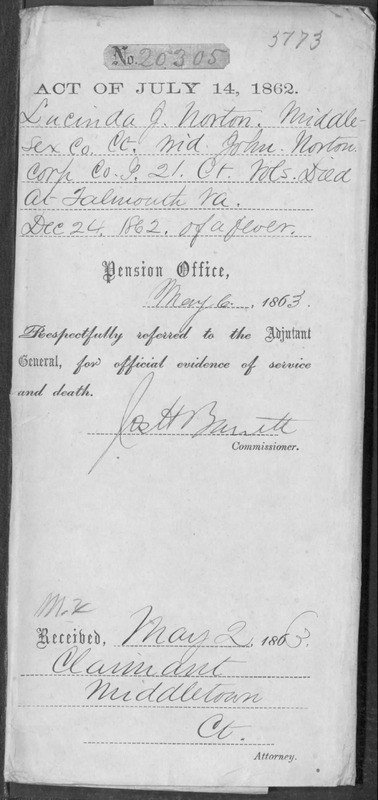 3773
No. 20305
ACT OF JULY 14, 1862.
Lucinda J. Norton. Middle-
sex Co. Ct. Wid. John. Norton
Corp Co. I. 21. Ct. Vols. Died
At Falmouth Va.
Dec 24. 1862. of a fever.
Pension Office,
May 6, 1863.
Respectfully referred to the Adjutant
General, for official evidence of service
and death.
Jos H Barrett
Commissioner.
Received, May 2, 1863.
Claimant
Middletown
Ct.
Attorney.